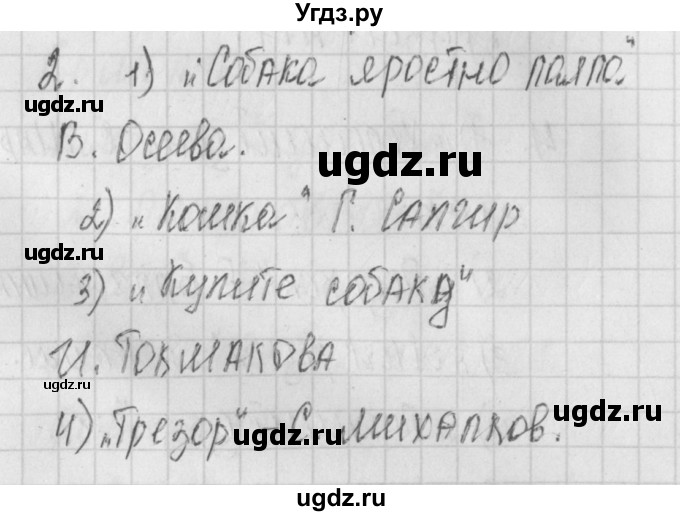 Угдз.ру
2. 1) „Собака яростно лаяла“
В. Осеева.
ugdz.ru
ugdz.ru
2) „Кошка“ Г. Сапгир
ugdz.ru
3) „Купите собаку“
ugdz.ru
И. Токмакова
ugdz.ru
4) „Трезор“ – С. Михалков.
ugdz.ru
ugdz.ru
ugdz.ru